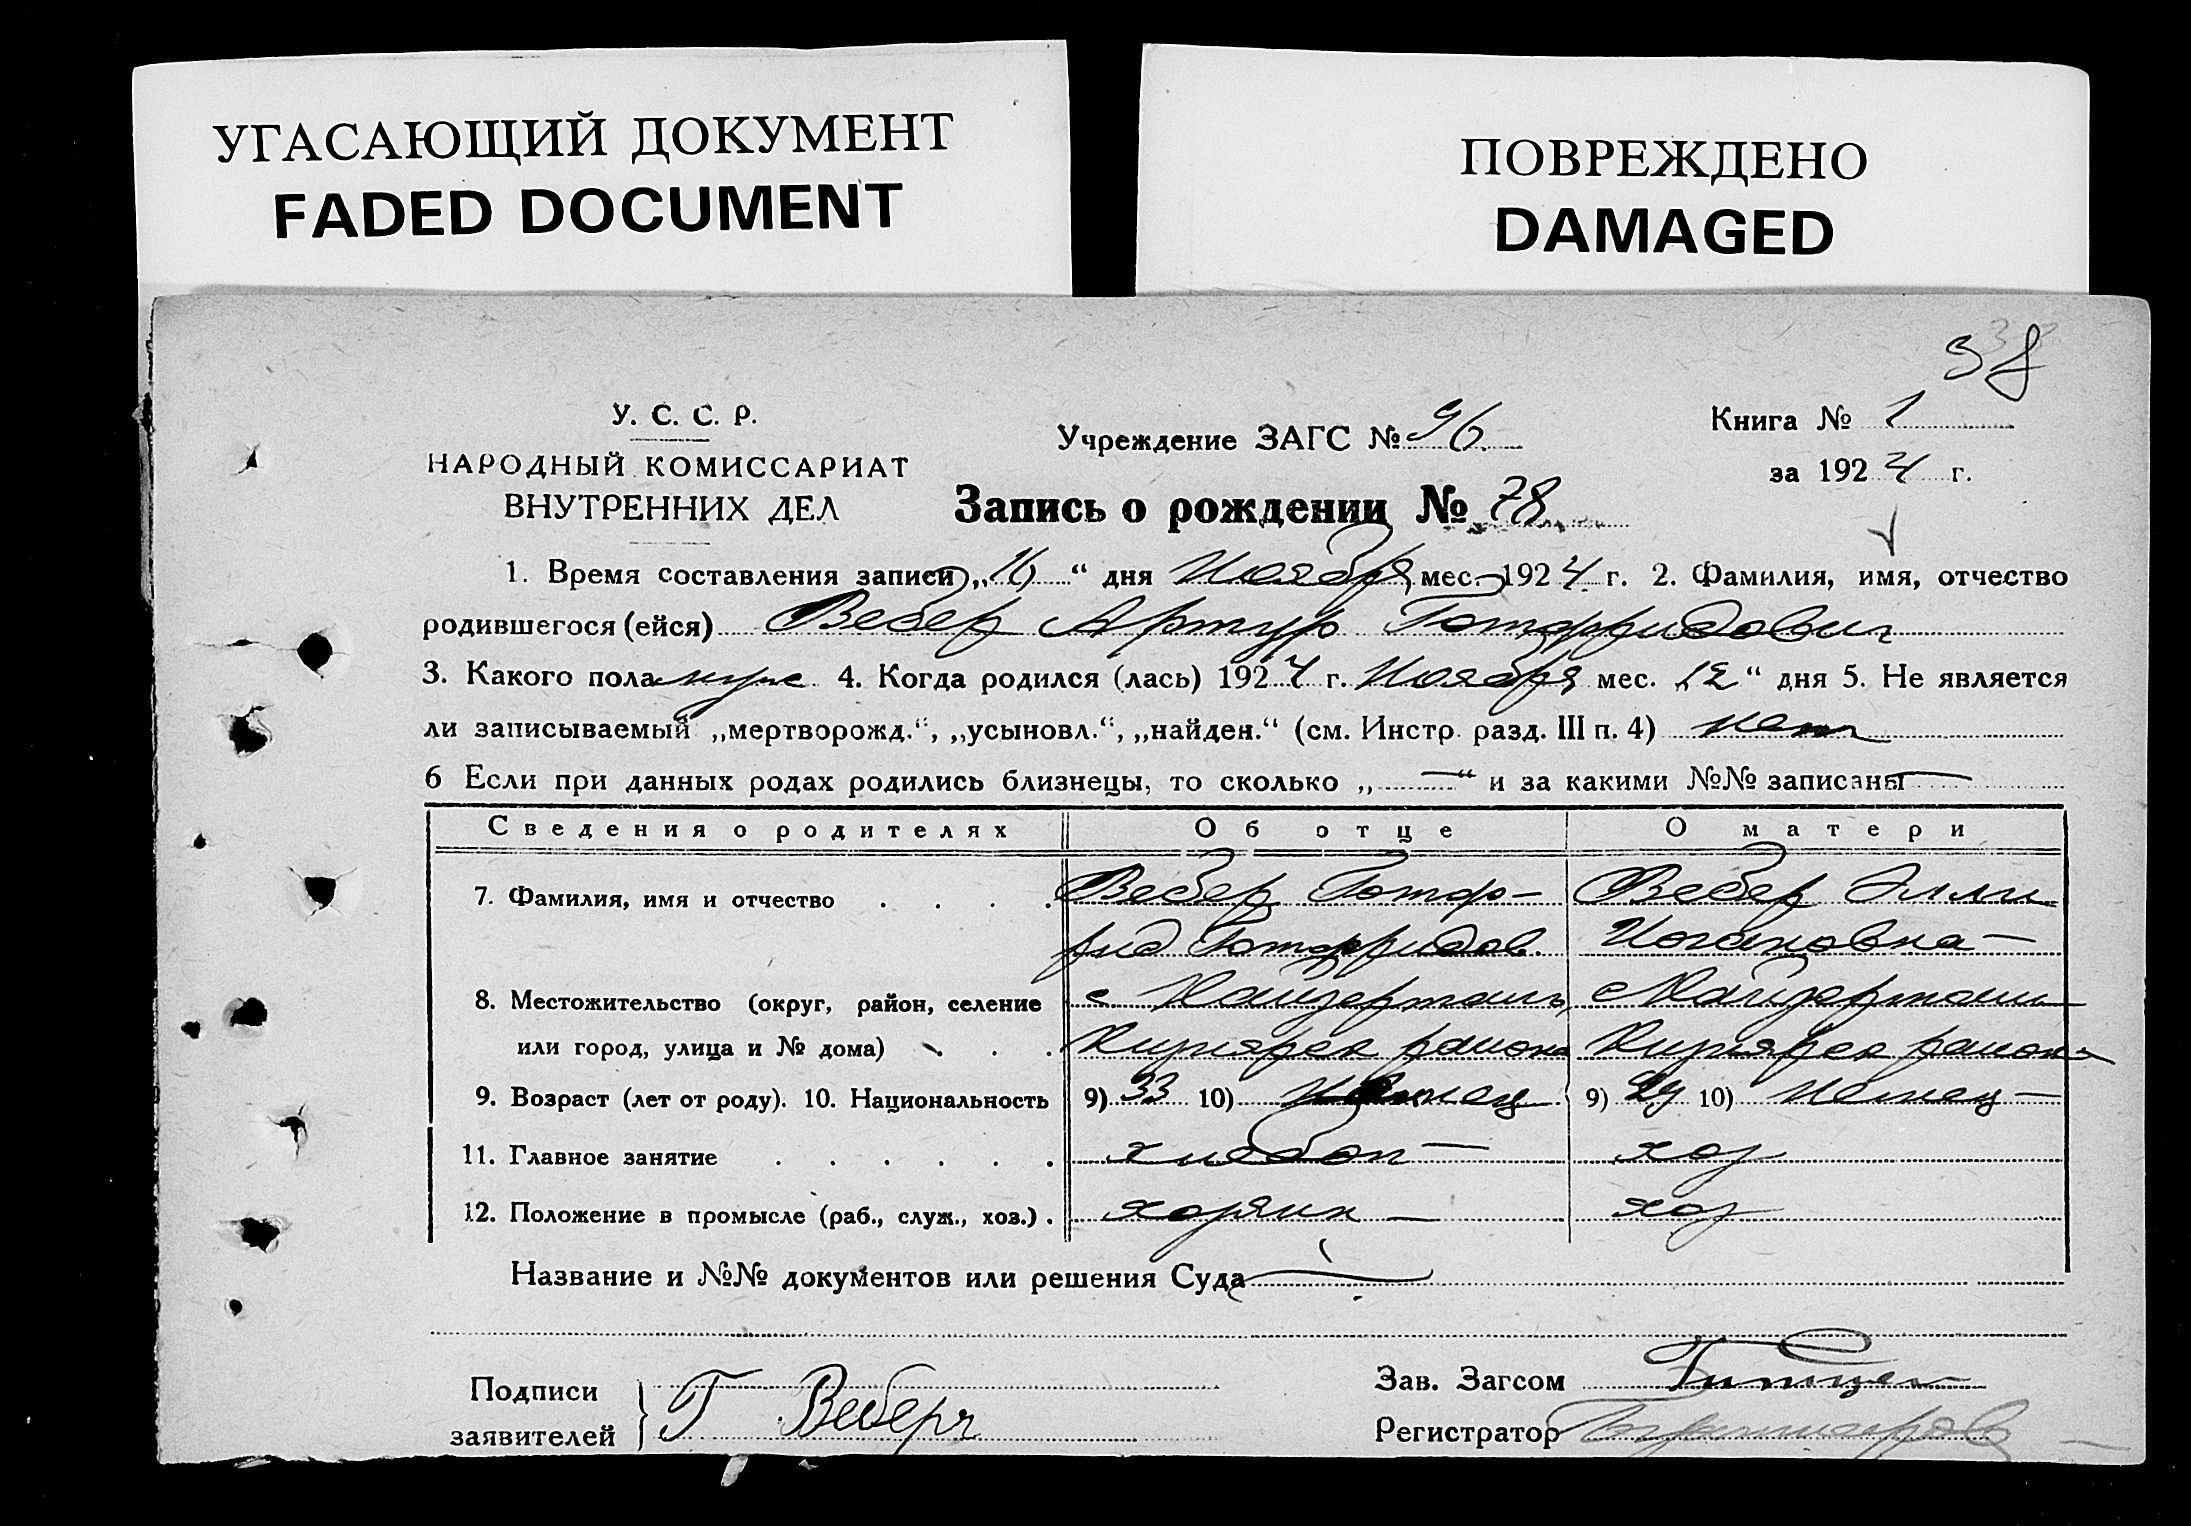 УГАСАЮЩИЙ ДОКУМЕНТ
FADED DOCUMENT
ПОВРЕЖДЕНО
DAMAGED
38
У. С. С. Р.
НАРОДНЫЙ КОМИССАРИАТ
ВНУТРЕННИХ ДЕЛ
Учреждение ЗАГС № 96
Книга № 1
за 1924 г.
Запись о рождении № 78
1. Время составления записи „16“ дня Ноября мес. 1924 г. 2. Фамилия, имя, отчество
родившегося (ейся) Вебер Артур Готфридович
3. Какого пола муж 4. Когда родился (лась) 1924 г. Ноября мес. „12“ дня 5. Не является
ли записываемый „мертворожд.“, „усыновл.“, „найден.“ (см. Инстр. разд. III п. 4) нет
6 Если при данных родах родились близнецы, то сколько „—“ и за какими №№ записаны —
Сведения о родителях Об отце О матери
7. Фамилия, имя и отчество . . . . Вебер Готф- Вебер Элли
рид Готфридов. Иогановна —
8. Местожительство (округ, район, селение с Кайзерталь с Кайзерталь
или город, улица и № дома) . . . района района
9. Возраст (лет от роду). 10. Национальность 9) 33 10) Немец 9) 29 10) Немец —
11. Главное занятие . . . . . . хлебоп — хоз
12. Положение в промысле (раб., служ., хоз.) . хозяин — хоз
Название и №№ документов или решения Суда —
Подписи
заявителей } Г Веберъ
Зав. Загсом
Регистратор